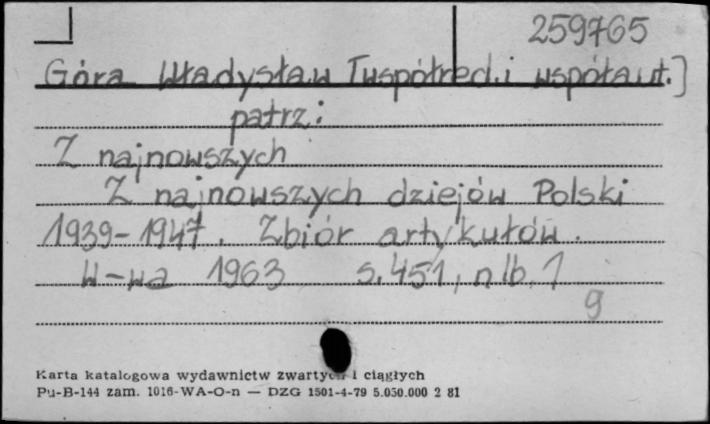 259765
Góra Władysław [współred. i współaut.]
patrz:
Z najnowszych
Z najnowszych dziejów Polski
1939-1947. Zbiór artykułów.
W-wa 1963 s. 451, nlb. 1
9
Karta katalogowa wydawnictw zwartych i ciągłych
Pu-B-144 zam. 1016-WA-O-n — DZG 1501-4-79 5.050.000 2 81